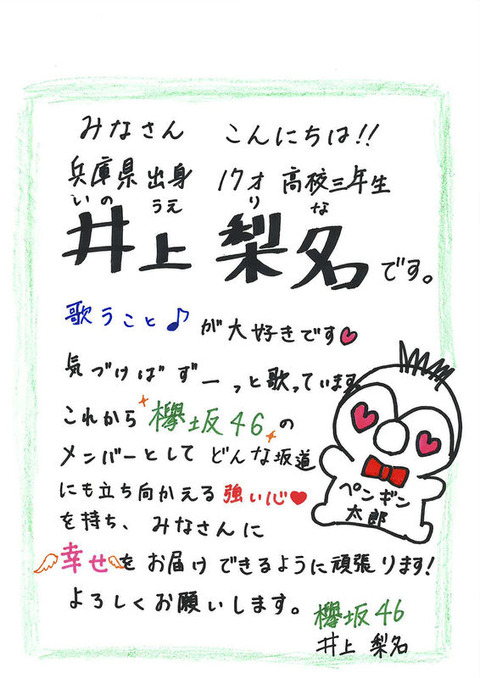 みなさん こんにちは!!
兵庫県出身 17才 高校三年生
いの うえ り な
井上 梨名です。
歌うこと♪が大好きです
気づけばずーっと歌っています
これから欅坂46の
メンバーとしてどんな坂道
にも立ち向かえる強い心
を持ち、みなさんに
幸せをお届けできるように頑張ります!
よろしくお願いします。
ペンギン
太郎
欅坂46
井上 梨名